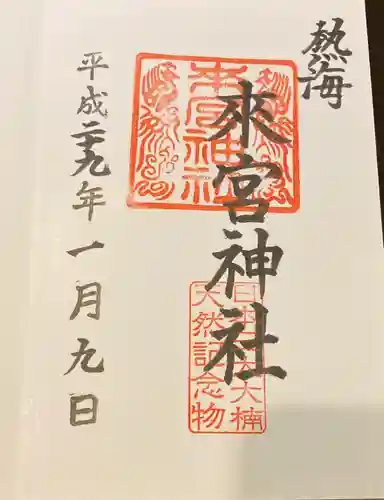 熱海
來宮神社
平成二十九年一月九日
來宮神社
天然記念物